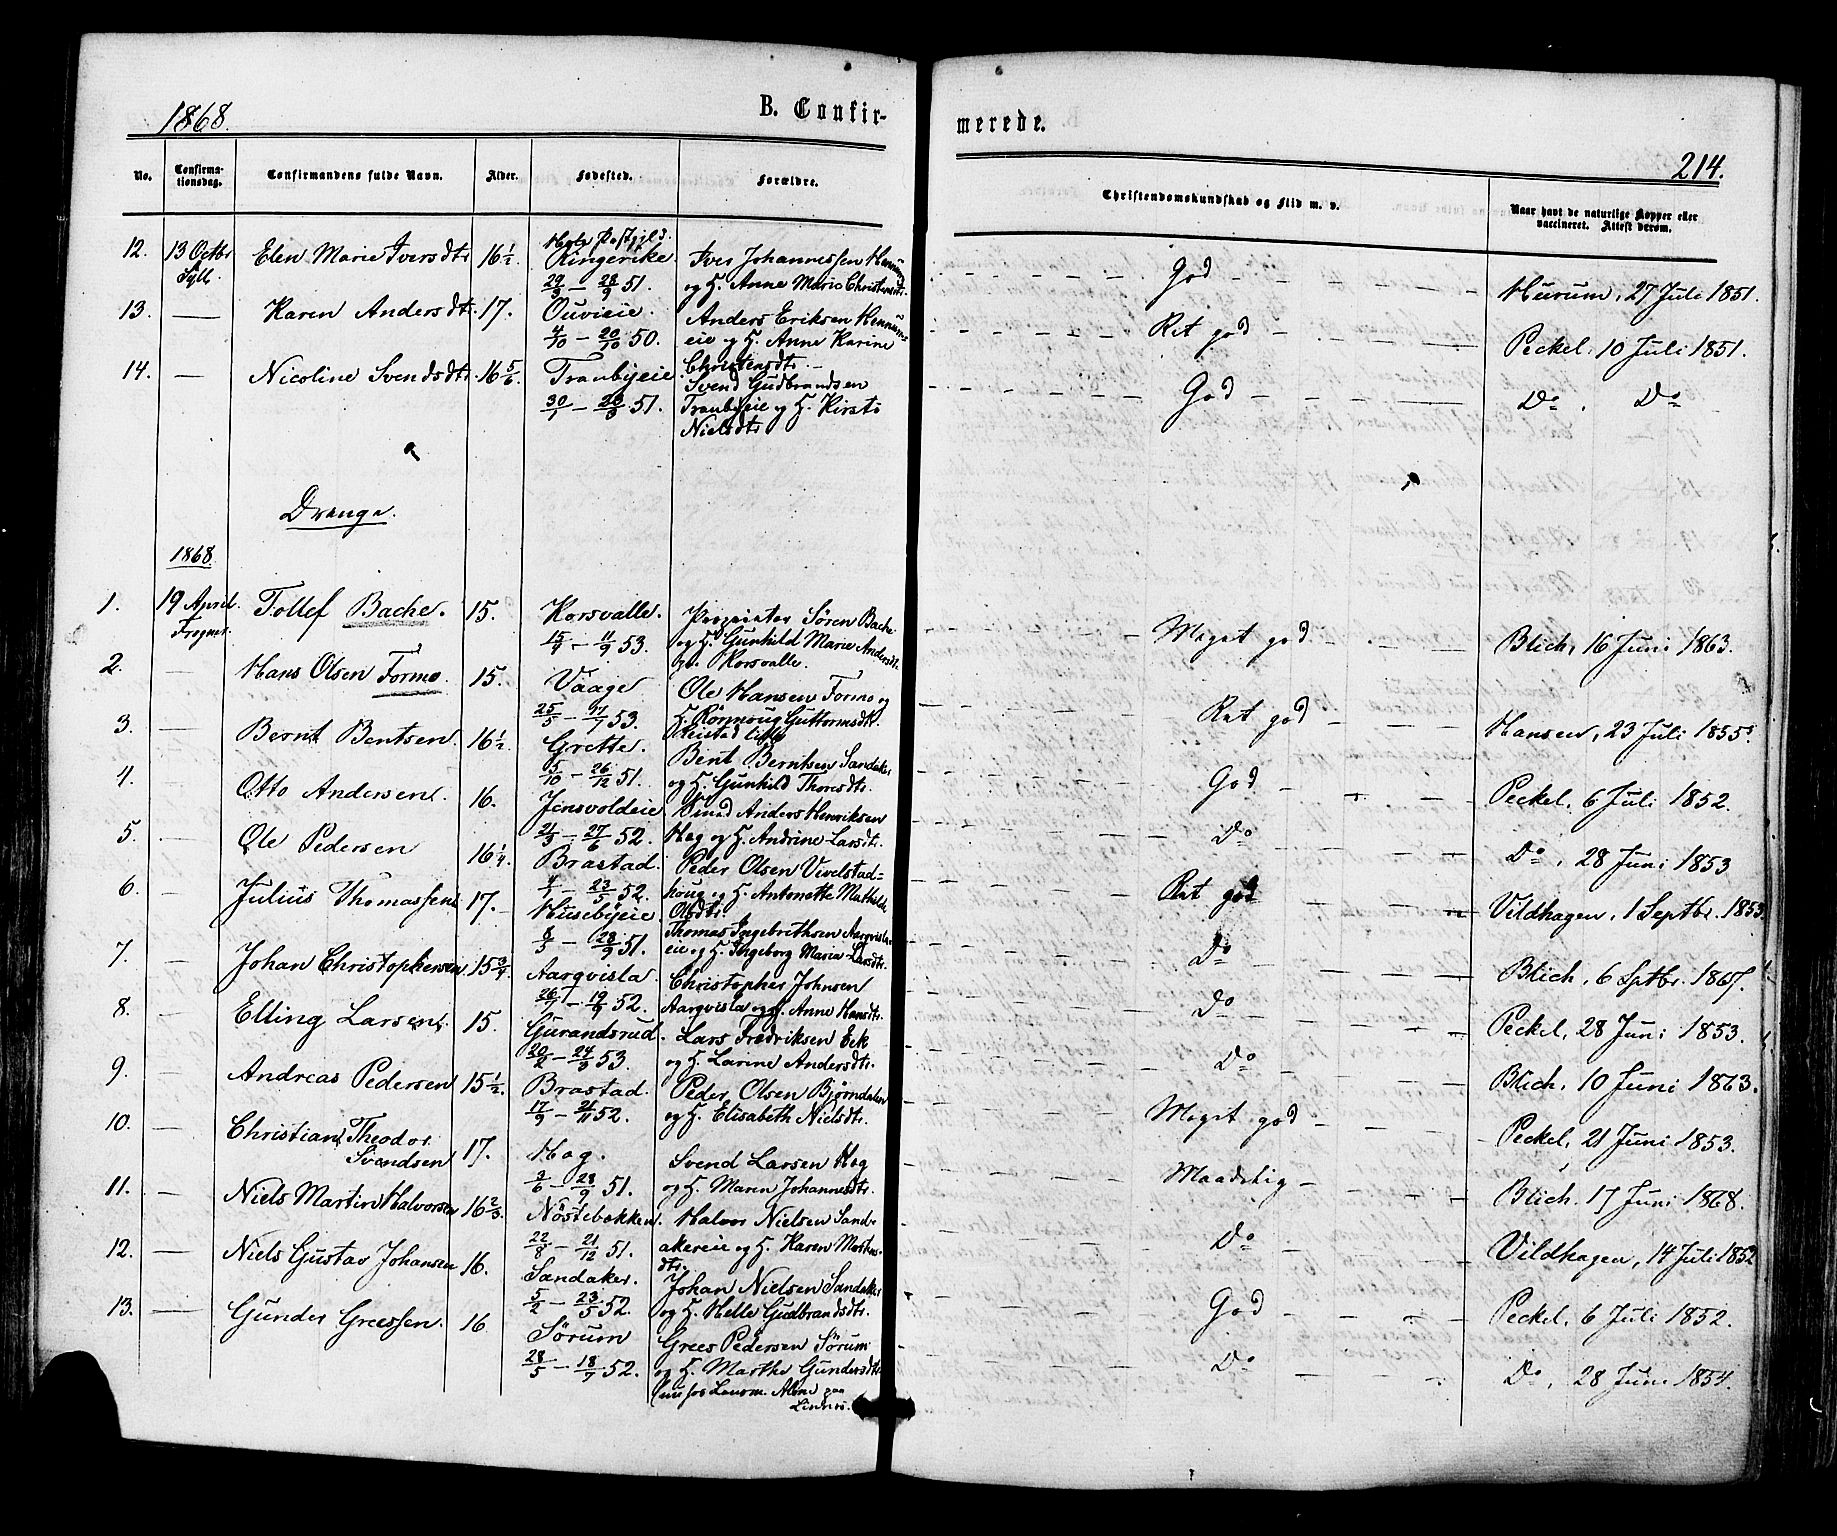 1868.
B. Confir-
merede.
214.
No.
Confirma-
tionsdag.
Confirmandens fulde Navn.
Alder.
Fødested.
Forældre.
Christendomskundskab og Flid m. v.
Naar havt de naturlige Kopper eller
vaccineret. Attest derom.
12. 13 Octbr Elen Marie Iversdtr 16 1/2 Hole Præstgjld. Iver Johannessen
Syll. Ringerike og H. Anne Marie Christensdtr.
29/3 - 28/9 51. God Hurum, 27 Juli 1851.
13. — Karen Andersdtr. 17. Ouvieie. Anders Eriksen Hennum
4/10 - 20/10 50. eie og H. Anne Karine Ret god Peckel, 10 Juli 1851.
Christensdtr.
14. — Nicoline Svendsdtr. 16 5/6. Tranbyeie. Svend Gudbrandsen
30/1 - 23/3 51. Tranbyeie og H. Kirsti God Do. Do
Nielsdtr
Drenge.
1868
1. 19 April. Tollef Bache. 15. Korsvalle. Proprietær Sören Bache
Frogner. 15/4 - 11/9 53. og H. Gunhild Marie Andersdtr. Meget god Blich, 16 Juni 1863.
Korsvalle.
2. — Hans Olsen Formo. 15. Vaage Ole Hansen Formo og
25/5 - 17/7 53. H. Rönnoug Guttormsdtr. Ret god Hansen, 23 Juli 1855.
3. — Bernt Bentsen. 16 1/2. Grette. Bent Berntsen Sandaker
5/10 - 26/12 51. og H. Gunhild Thoresdtr. God Peckel, 6 Juli 1852.
4. — Otto Andersen. 16. Jensvoldeie Smed Anders Henriksen
21/3 - 27/6 52. Hog og H. Andrine Larsdtr. Do Do, 28 Juni 1853
5. — Ole Pedersen 16 1/4. Brastad. Peder Olsen Vivelstad-
4/1 - 23/5 52. houg og H. Antonette Mathilde Ret god Vildhagen, 1 Septbr. 1853.
Olsdtr.
6. — Julius Thomassen 17. Husebyeie Thomas Ingebrethsen Aarqvisla-
8/5 - 28/9 51. eie og H. Ingeborg Maria Larsdtr. Do Blich, 6 Sptbr. 1867.
7. — Johan Christophersen 15 3/4 Aarqvisla Christopher Johnsen
26/7 - 19/9 52. Aarqvisla og H. Anne Hansdtr. Do Peckel, 28 Juni 1853.
8. — Elling Larsen. 15. Gurandsrud. Lars Fredriksen Eek
20/2 - 24/3 53. og H. Larine Andersdtr. Do Blich, 10 Juni 1863.
9. — Andreas Pedersen 15 1/2. Brastad. Peder Olsen Bjørndalen
17/9 - 21/11 52. og H. Elisabeth Nielsdtr. Meget god Peckel, 21 Juni 1853.
10. — Christian Theodor
Svendsen 17. Hog. Svend Larsen Hog
2/6 - 28/9 51. og H. Maren Johannesdtr. Maadelig Blich. 17 Juni 1868.
11. — Niels Martin Halvorsen 16 2/3. Nöstebakken. Halvor Nielsen Sand-
22/8 - 21/12 51. akereie og H. Karen Mortens- Do Vildhagen, 14 Juli 1852
dtr.
12. — Niels Gustav Johansen 16. Sandaker. Johan Nielsen Sandaker
5/2 - 23/5 52. og H. Helle Gudbrandsdtr. God Peckel, 6 Juli 1852.
13. — Gunder Greessen. 16 Sörum Grees Pedersen Sörum
28/5 - 18/7 52. og H. Marthe Gundersdtr Do Do, 28 Juni 1854.
paa
Linnes.